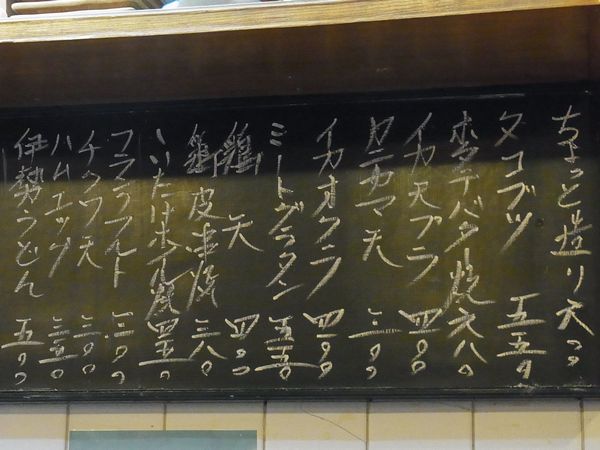 ちょっと造り 六〇〇
タコブツ 五五〇
ホタテバター焼 六八〇
イカ天プラ 四八〇
カニカマ天 三〇〇
イカオクラ 四〇〇
ミートグラタン 五五〇
鶏天 四〇〇
鶏皮串焼 三八〇
しいたけホイル焼 四五〇
フライフポテト
チクワ天 三〇〇
ハムエッグ 三五〇
伊勢うどん 五〇〇